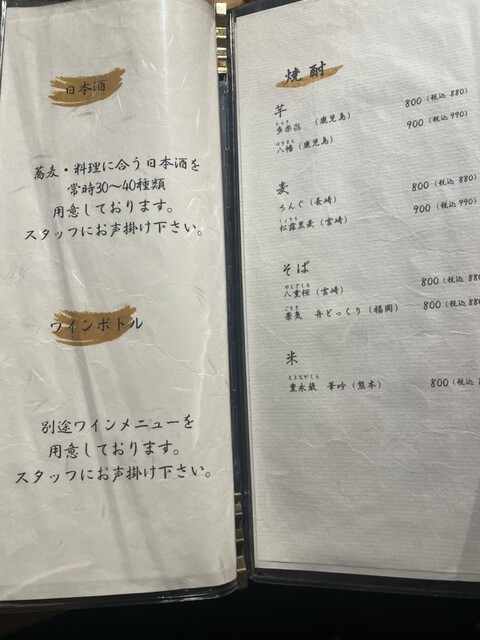 日本酒
蕎麦・料理に合う日本酒を
常時30〜40種類
用意しております。
スタッフにお声掛け下さい。
ワインボトル
別途ワインメニューを
用意しております。
スタッフにお声掛け下さい。
焼酎
芋 800 (税込 880)
(鹿児島) 900 (税込 990)
はちまん
八幡 (鹿児島)
麦 800 (税込 880)
ちんぐ (長崎) 900 (税込 990)
松露黒麦 (宮崎)
そば
やえざくら
八重桜 (宮崎) 800 (税込 880
舟どっくり (福岡) 800 (税込 880
米
とよながくら
豊永蔵 華吟 (熊本) 800 (税込